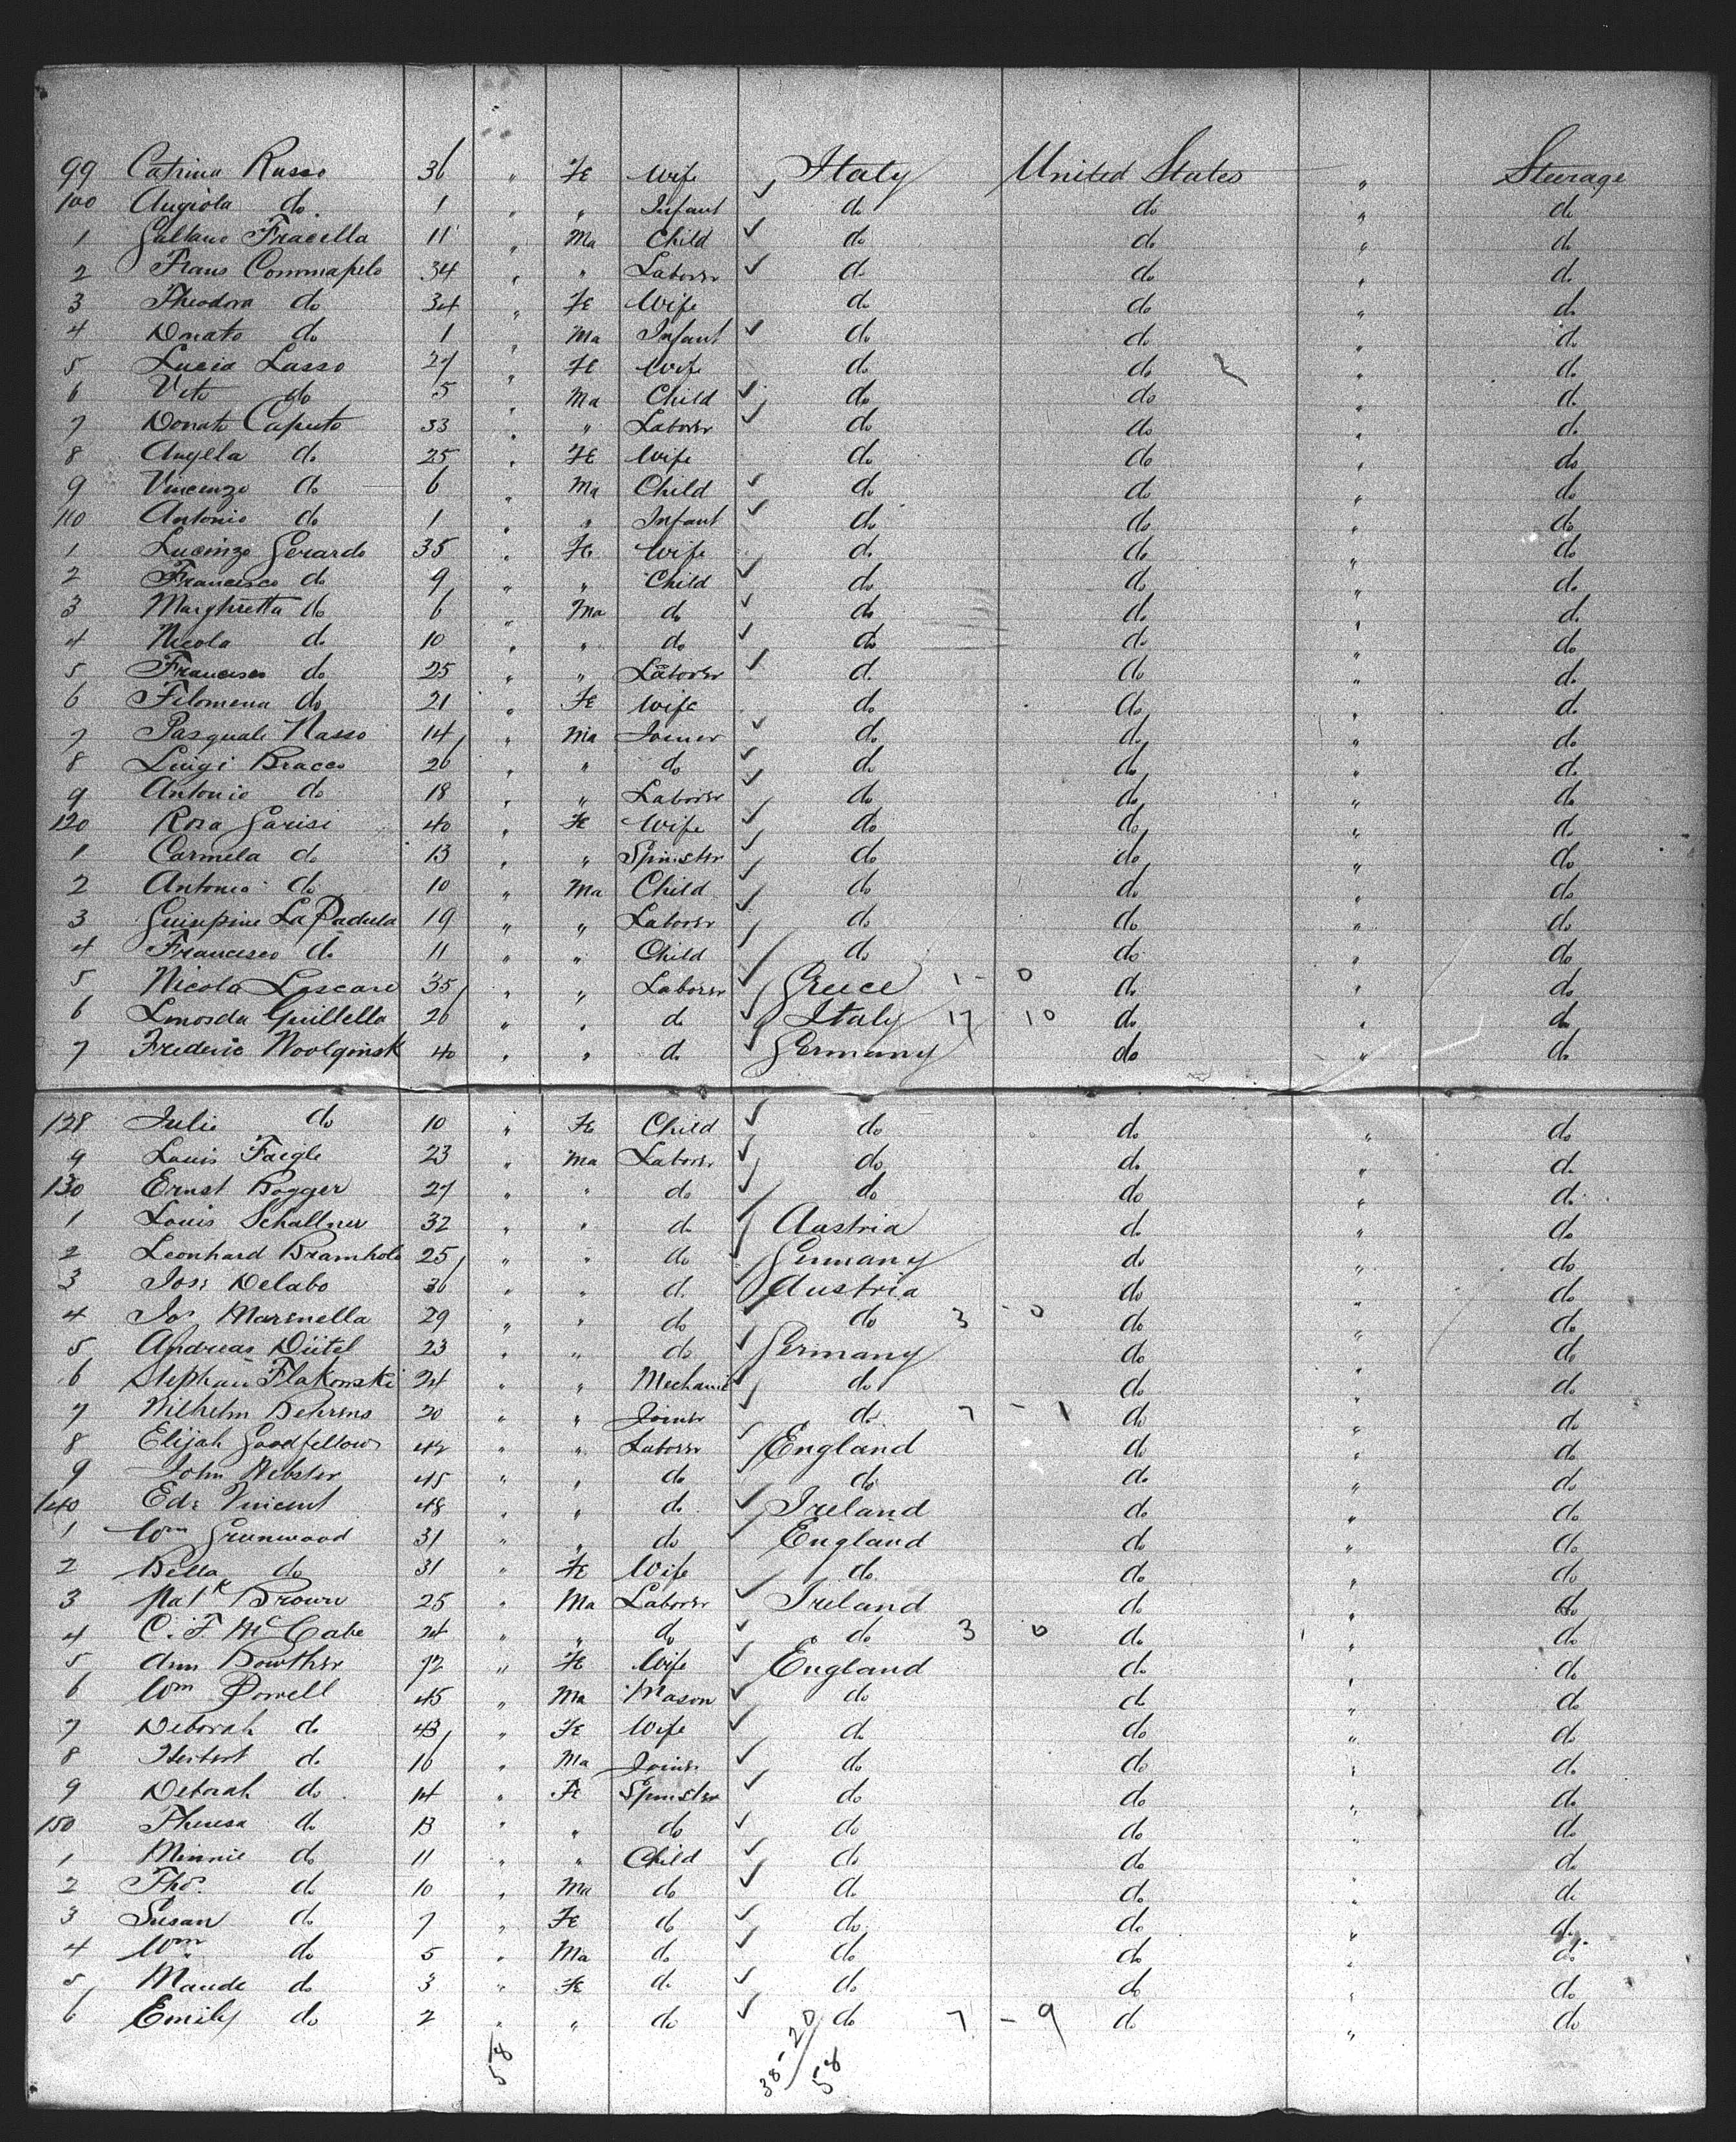 99 Catrina Russo 36 " Fe Wife Italy United States " Steerage
100 Angiola do 1 " " Infant do do " do
1 Gaetano Fracella 11 " Ma Child do do " do
2 Frans Commapelo 34 " " Laborer do do " do
3 Theodora do 34 " Fe Wife do do " do
4 Donato do 1 " Ma Infant do do " do
5 Lucia Lasso 27 " Fe Wife do do " do
6 Vito do 5 " Ma Child do do " do
7 Donato Caputo 33 " " Laborer do do " do
8 Angella do 25 " Fe Wife do do " do
9 Vincenzo do 6 " Ma Child do do " do
110 Antonio do 1 " " Infant do do " do
1 Lucinzo Gerardo 35 " Fe Wife do do " do
2 Francisco do 9 " " Child do do " do
3 Marghretta do 6 " Ma do do do " do
4 Nicola do 10 " " do do do " do
5 Francisco do 25 " " Laborer do do " do
6 Filomena do 21 " Fe Wife do do " do
7 Pasquale Nasso 14 " Ma Joiner do do " do
8 Luigi Bracco 26 " " do do do " do
9 Antonio do 18 " " Laborer do do " do
120 Rosa Garisi 40 " Fe Wife do do " do
1 Carmela do 13 " " Spinster do do " do
2 Antonio do 10 " Ma Child do do " do
3 Guisepine La Padula 19 " " Laborer do do " do
4 Francisco do 11 " " Child do do " do
5 Nicola Lascare 35 " " Laborer Greece 1 - 0 do " do
6 Guiltella 26 " " do Italy 17 10 do " do
7 Frederic Woolginsk 40 " " do Germany do " do
128 Julie do 10 " Fe Child do do " do
9 Louis Faigle 23 " Ma Laborer do do " do
130 Ernst Bogger 27 " " do do do " do
1 Louis Schallner 32 " " do Austria do " do
2 Leonhard Bramhold 25 " " do Germany do " do
3 Jos: Delabo 36 " " do Austria do " do
4 Jos Marinella 29 " " do do 3 - 0 do " do
5 Andreas Dütel 23 " " do Germany do " do
6 Stephan Flakowski 24 " " Mechanic do do " do
7 Wilhelm Behrens 20 " " Joiner do 7 - 1 do " do
8 Elijah Goodfellow 42 " " Laborer England do " do
9 John Webster 45 " " do do do " do
140 Ed: Vincent 48 " " do Ireland do " do
1 Wm Greenwood 31 " " do England do " do
2 Bella do 31 " Fe Wife do do " do
3 Patk Brown 25 " Ma Laborer Ireland do " do
4 C. F. McCabe 24 " " do do 3 0 do " do
5 Ann Bowther 72 " Fe Wife England do " do
6 Wm Powell 45 " Ma Mason do do " do
7 Deborah do 43 " Fe Wife do do " do
8 Herbert do 16 " Ma Joiner do do " do
9 Deborah do 14 " Fe Spinster do do " do
150 Theresa do 13 " " do do do " do
1 Minnie do 11 " " Child do do " do
2 Thos. do 10 " Ma do do do " do
3 Susan do 7 " Fe do do do " do
4 Wm do 5 " Ma do do do " do
5 Maude do 3 " Fe do do do " do
6 Emily do 2 " " do do 7 - 9 do " do
58 38-20/58